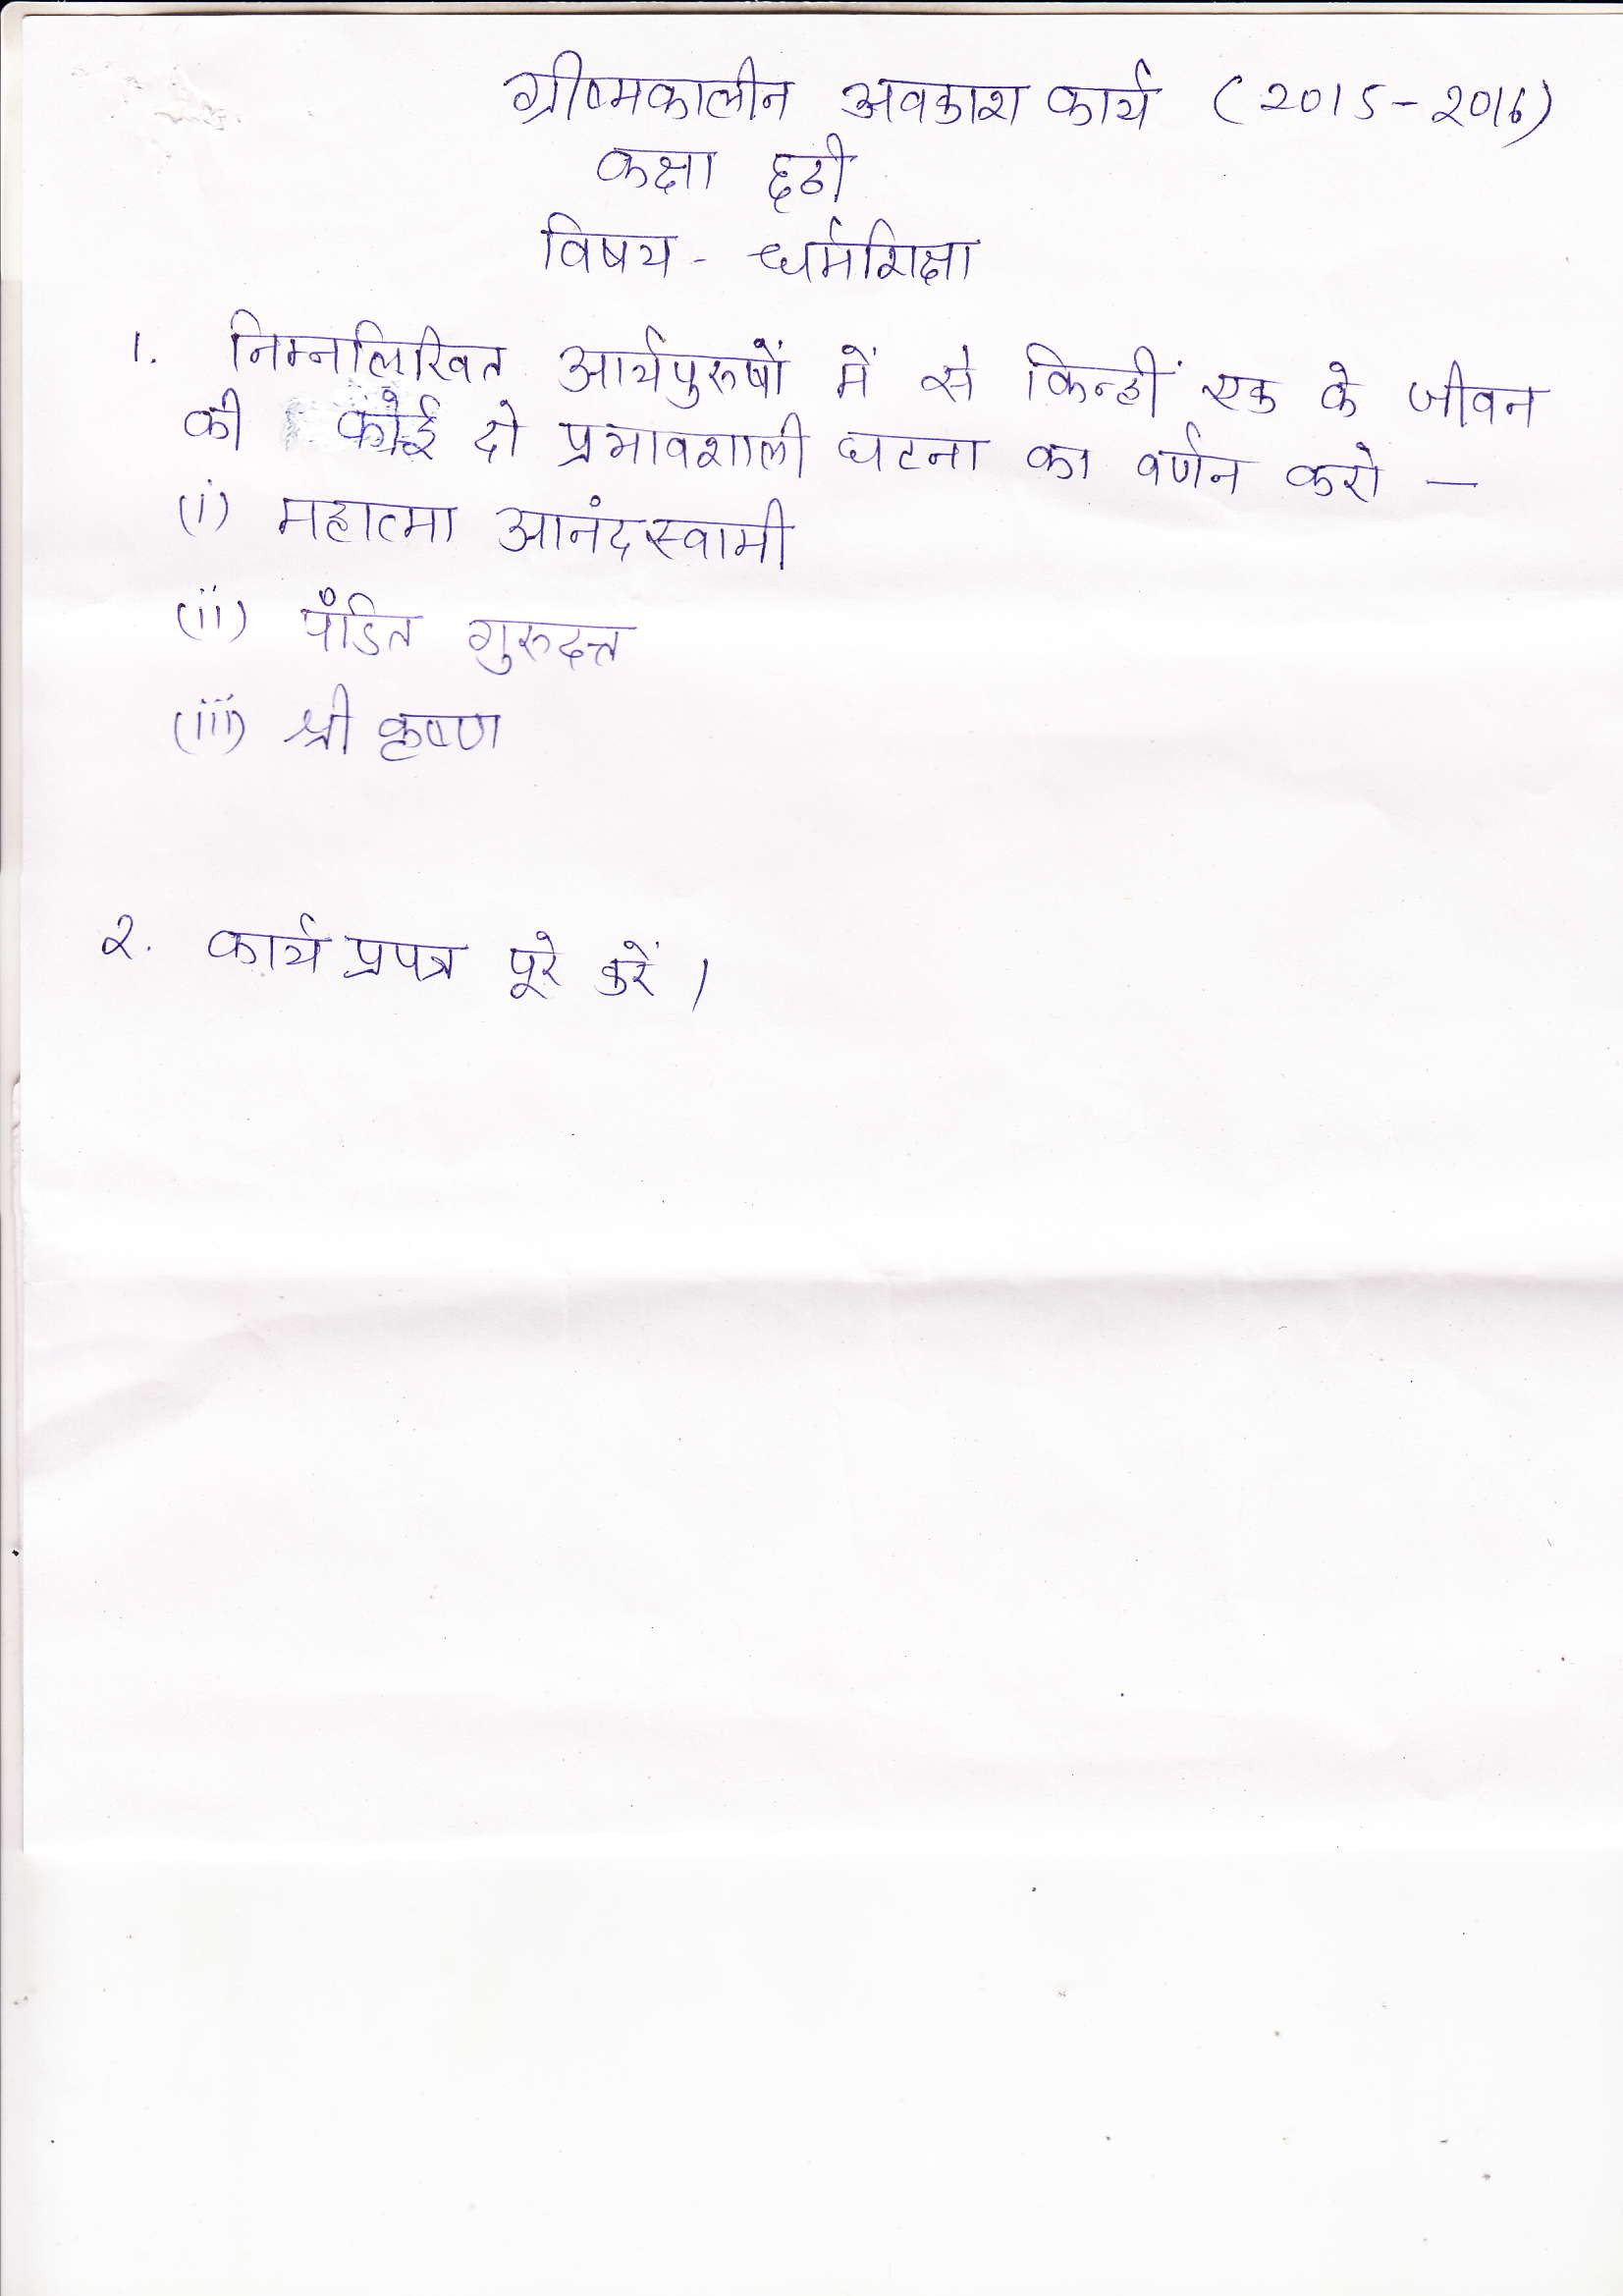 ग्रीष्मकालीन अवकाश कार्य (2015-2016)
कक्षा छठी
विषय - धर्मशिक्षा
1. निम्नलिखित आर्यपुरुषों में से किन्हीं एक के जीवन
की कोई दो प्रभावशाली घटना का वर्णन करो -
(i) महात्मा आनंदस्वामी
(ii) पंडित गुरुदत्त
(iii) श्री कृष्ण
2. कार्य प्रपत्र पूरे करें।